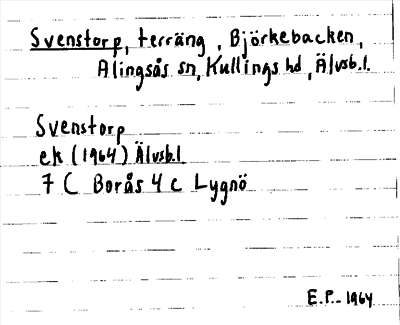 Svenstorp, terräng, Björkebacken,
Alingsås sn, Kullings hd, Älvsb.l.
Svenstorp
ek (1964) Älvsb.l
7 C Borås 4 c Lygnö
E.P. - 1964